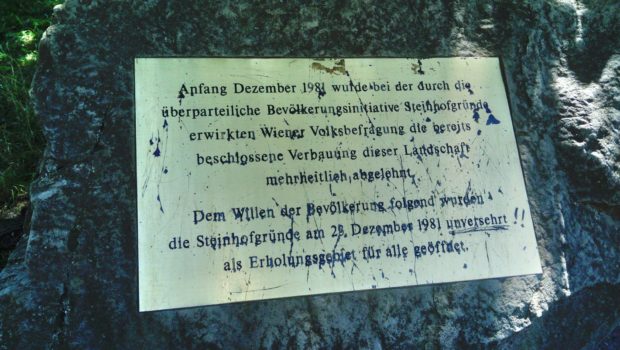 Anfang Dezember 1981 wurde bei der durch die
überparteiliche Bevölkerungsinitiative Steinhofgründe
erwirkten Wiener Volksbefragung die bereits
beschlossene Verbauung dieser Landschaft
mehrheitlich abgelehnt.
Dem Willen der Bevölkerung folgend wurden
die Steinhofgründe am 28. Dezember 1981 unversehrt !!
als Erholungsgebiet für alle geöffnet.